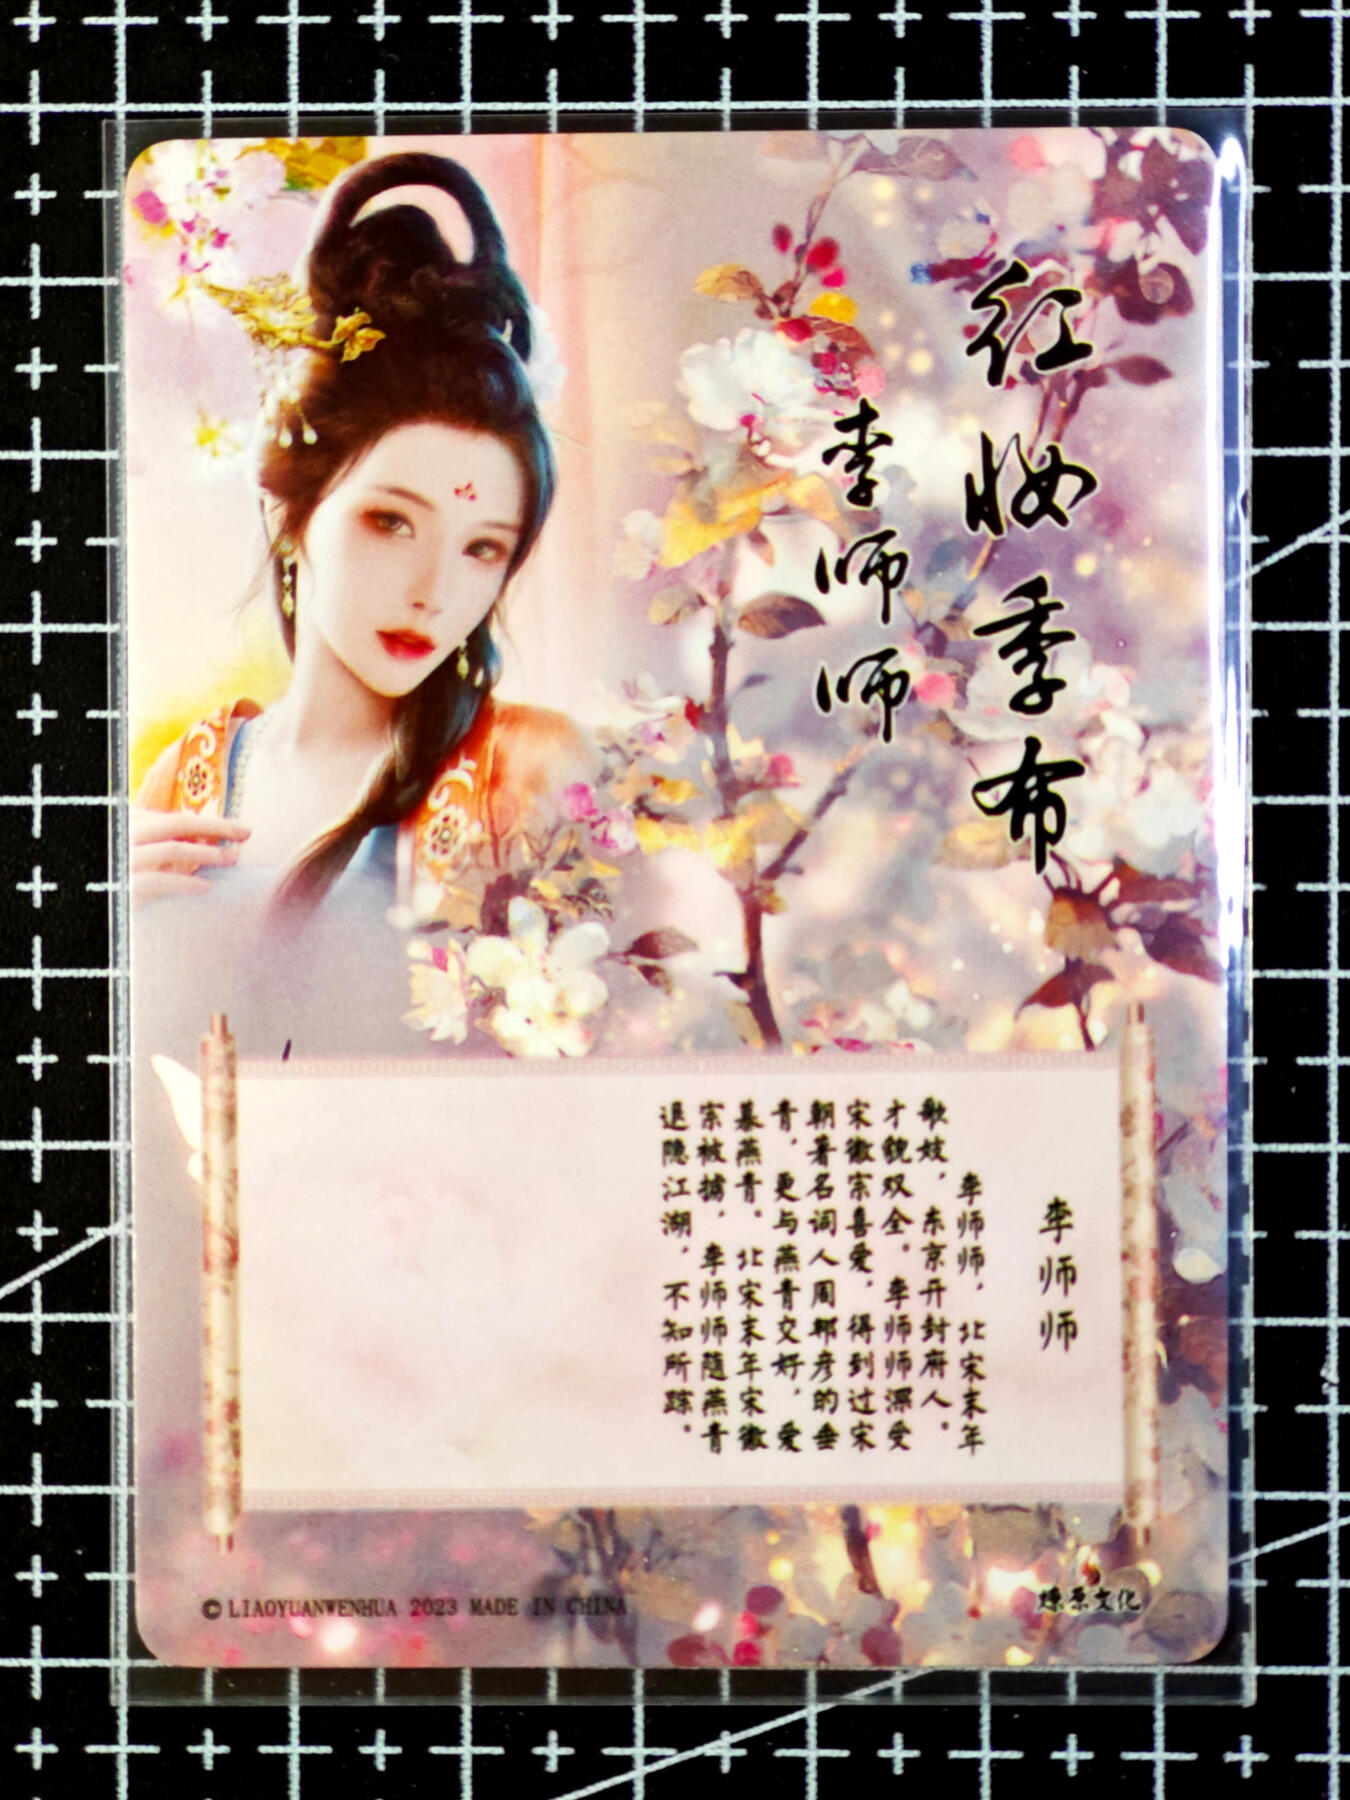 红妆季布
李师师
李师师
李师师，北宋末年
歌妓，东京开封府人。
才貌双全。李师师深受
宋徽宗喜爱，得到过宋
朝著名词人周邦彦的垂
青，更与燕青交好，爱
慕燕青。北宋末年宋徽
宗被掳，李师师随燕青
退隐江湖，不知所踪。
©LIAOYUANWENHUA 2023 MADE IN CHINA
燎原文化